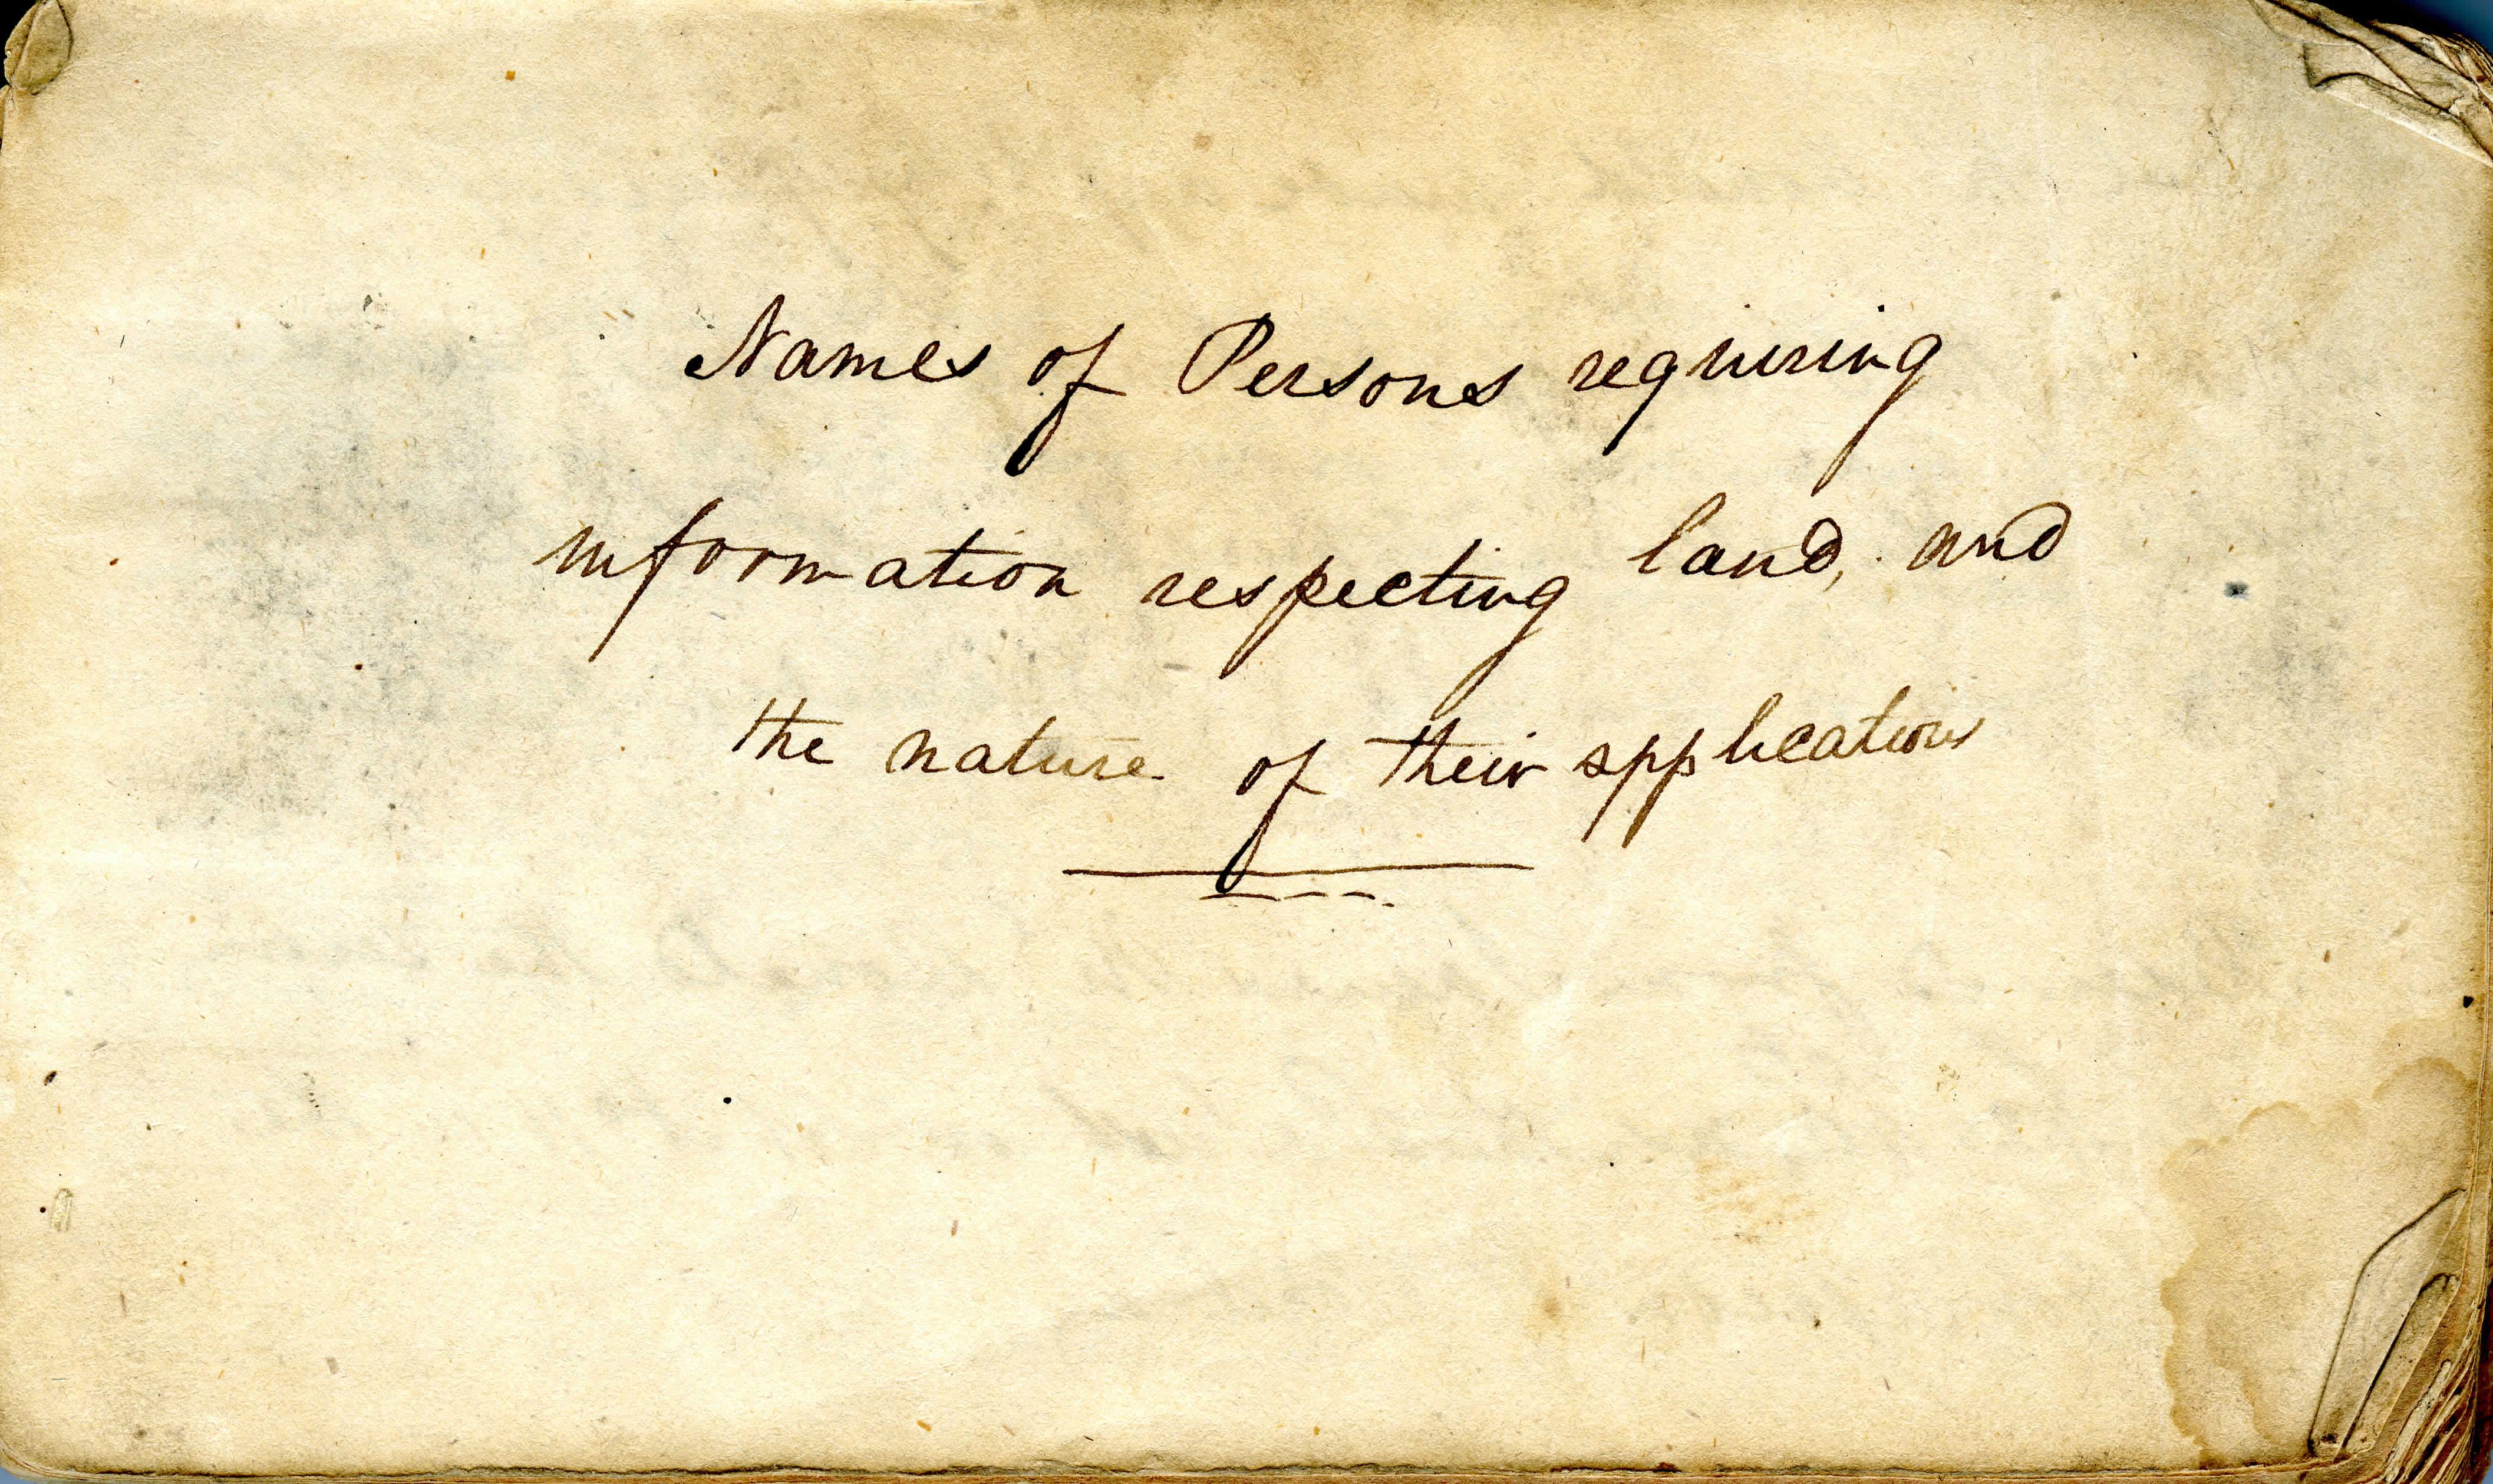 Names of Persons requiring
information respecting land, and
the nature of their applications